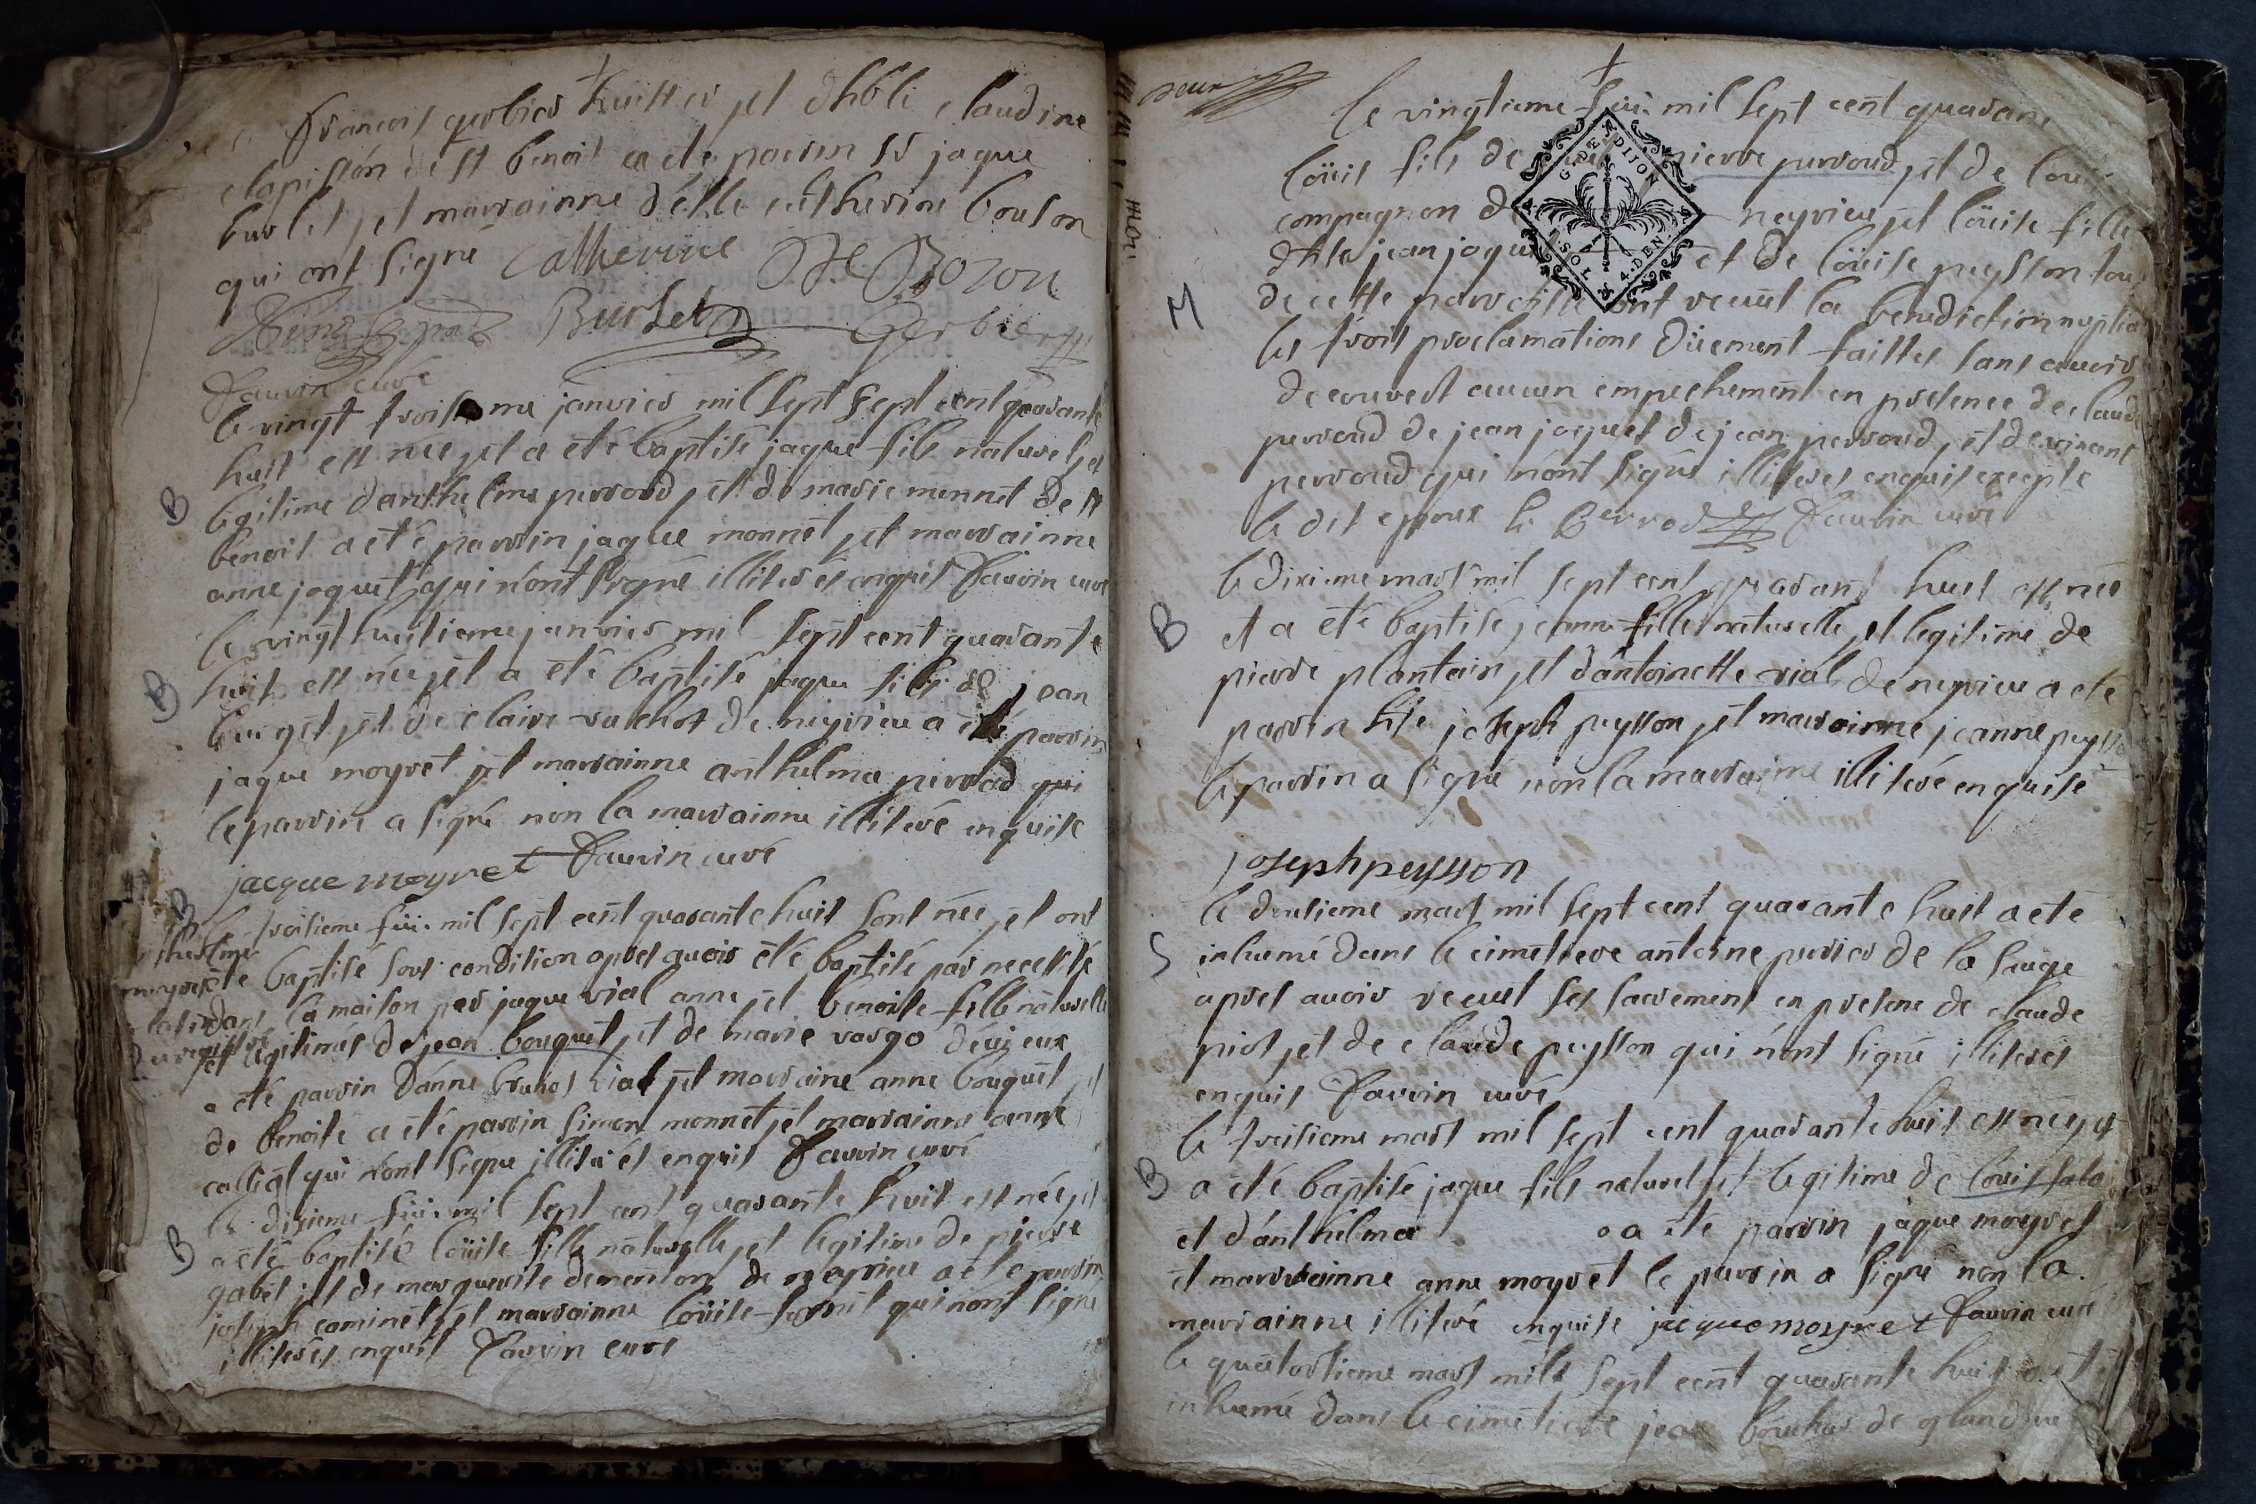 françois gerbier huissier et dhlle claudine
clapisson de st benoit a ete parrin sr jaque
burlet et marrainne d'elle catherine bouson
qui ont signé Catherine De Bozon
Burlet Gerbier
Fauvin curé
le vingt troisieme janvier mil sept sept cent quarante
huit est nee et a eté baptisé jaque fils naturel et
legitime danthelme perroud et de marie monnet de st
benoit a eté parrin jaque monnet et marrainne
anne jaquet qui n'ont signé illiteres enquis Fauvin curé
le vingt huitieme janvier mil sept cent quarante
huit est nee et a eté baptisé jaque fils de jean
burget et de claire ruchot de neyrieu a eté parrin
jaque moyret et marrainne anthelma perrod qui
le parrin a signé non la marrainne illiteré enquise
jacque moyret Fauvin curé
le troisieme fevr. mil sept cent quarante huit sont nee et ont
ete baptisé sous condition apres avoir eté baptisé par necessité
dans la maison par jaque vial anne et benoite fille naturelle
et legitimes de jean bouquet et de marie vargo d'evieux
a eté parrin d'anne brunet vial et marraine anne bouquet et
de benoite a eté parrin simon monnet et marrainne anne
calliat qui n'ont signe illiterés enquis Fauvin curé
le dixieme fevr. mil sept cent quarante huit est née et
a eté baptisé loüise fille naturelle et legitime de pierre
gabet et de marguerite dementon de neyrieu a ete parrin
joseph caminet et marrainne loüise fornit qui nont signe
illiteres enquis Fauvin curé
deux
le vingtieme fevr. mil sept cent quarante
loüis fils de pierre perroud et de louise
compagnon de neyrieu et loüise fille
de jean jaquet et de loüise peysson tous
M
de cette parroisse ont receut la benediction nuptiale
les trois proclamations düement faittes sans avoir
decouvert aucun empechement en presence de claude
perroud de jean jaquet de jean perroud et de vincent
perroud qui n'ont signé illiteres enquis excepté
le dit epoux L. Perrod Fauvin curé
le dixieme mars mil sept cent quarant huit est née
B
et a eté baptisé jeanne fille naturelle et legitime de
pierre plantain et d'antoinette vial de neyrieu a eté
parrin joseph peysson et marrainne jeanne peysson
le parrin a signé non la marrainne illiteré enquise
joseph peysson
le deusieme mars mil sept cent quarante huit a eté
S
inhumé dans le cimetiere antoine perrier de la sauge
apres avoir receut ses sacrement en presene de claude
piot et de claude peysson qui n'ont signé illiteres
enquis Fauvin curé
le treisieme mars mil sept cent quarante huit est née et
B
a eté baptisé jaque fils naturel et legitime de louis
et d'anthelma a eté parrin jaque moyret
et marrainne anne moyret le parrin a signé non la
marrainne illiteré enquise jacque moyret Fauvin curé
le quatorsieme mars mil sept cent quarante huit a eté
inhumé dans le cimetiere jean bouchar de glandieu
G. DE DIJON
1. SOL 4. DEN.